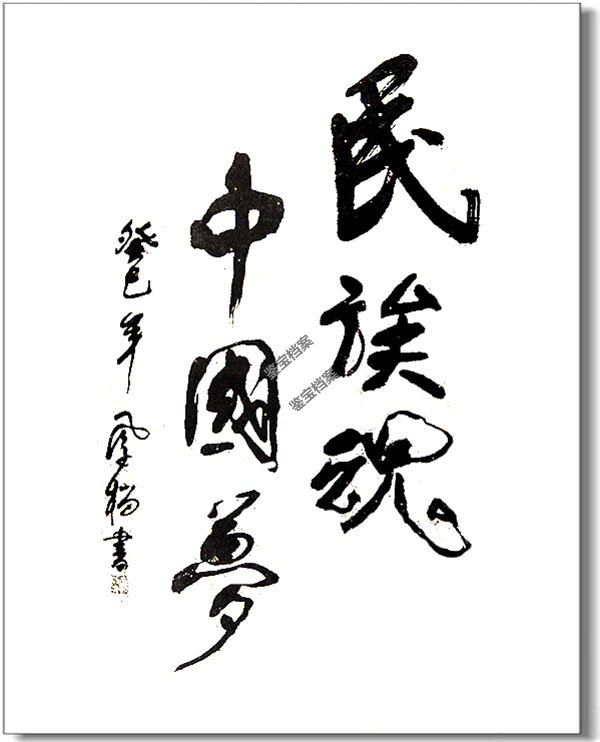 民族魂
中國夢
癸巳年 鳳楊書
鉴宝档案
鉴宝档案